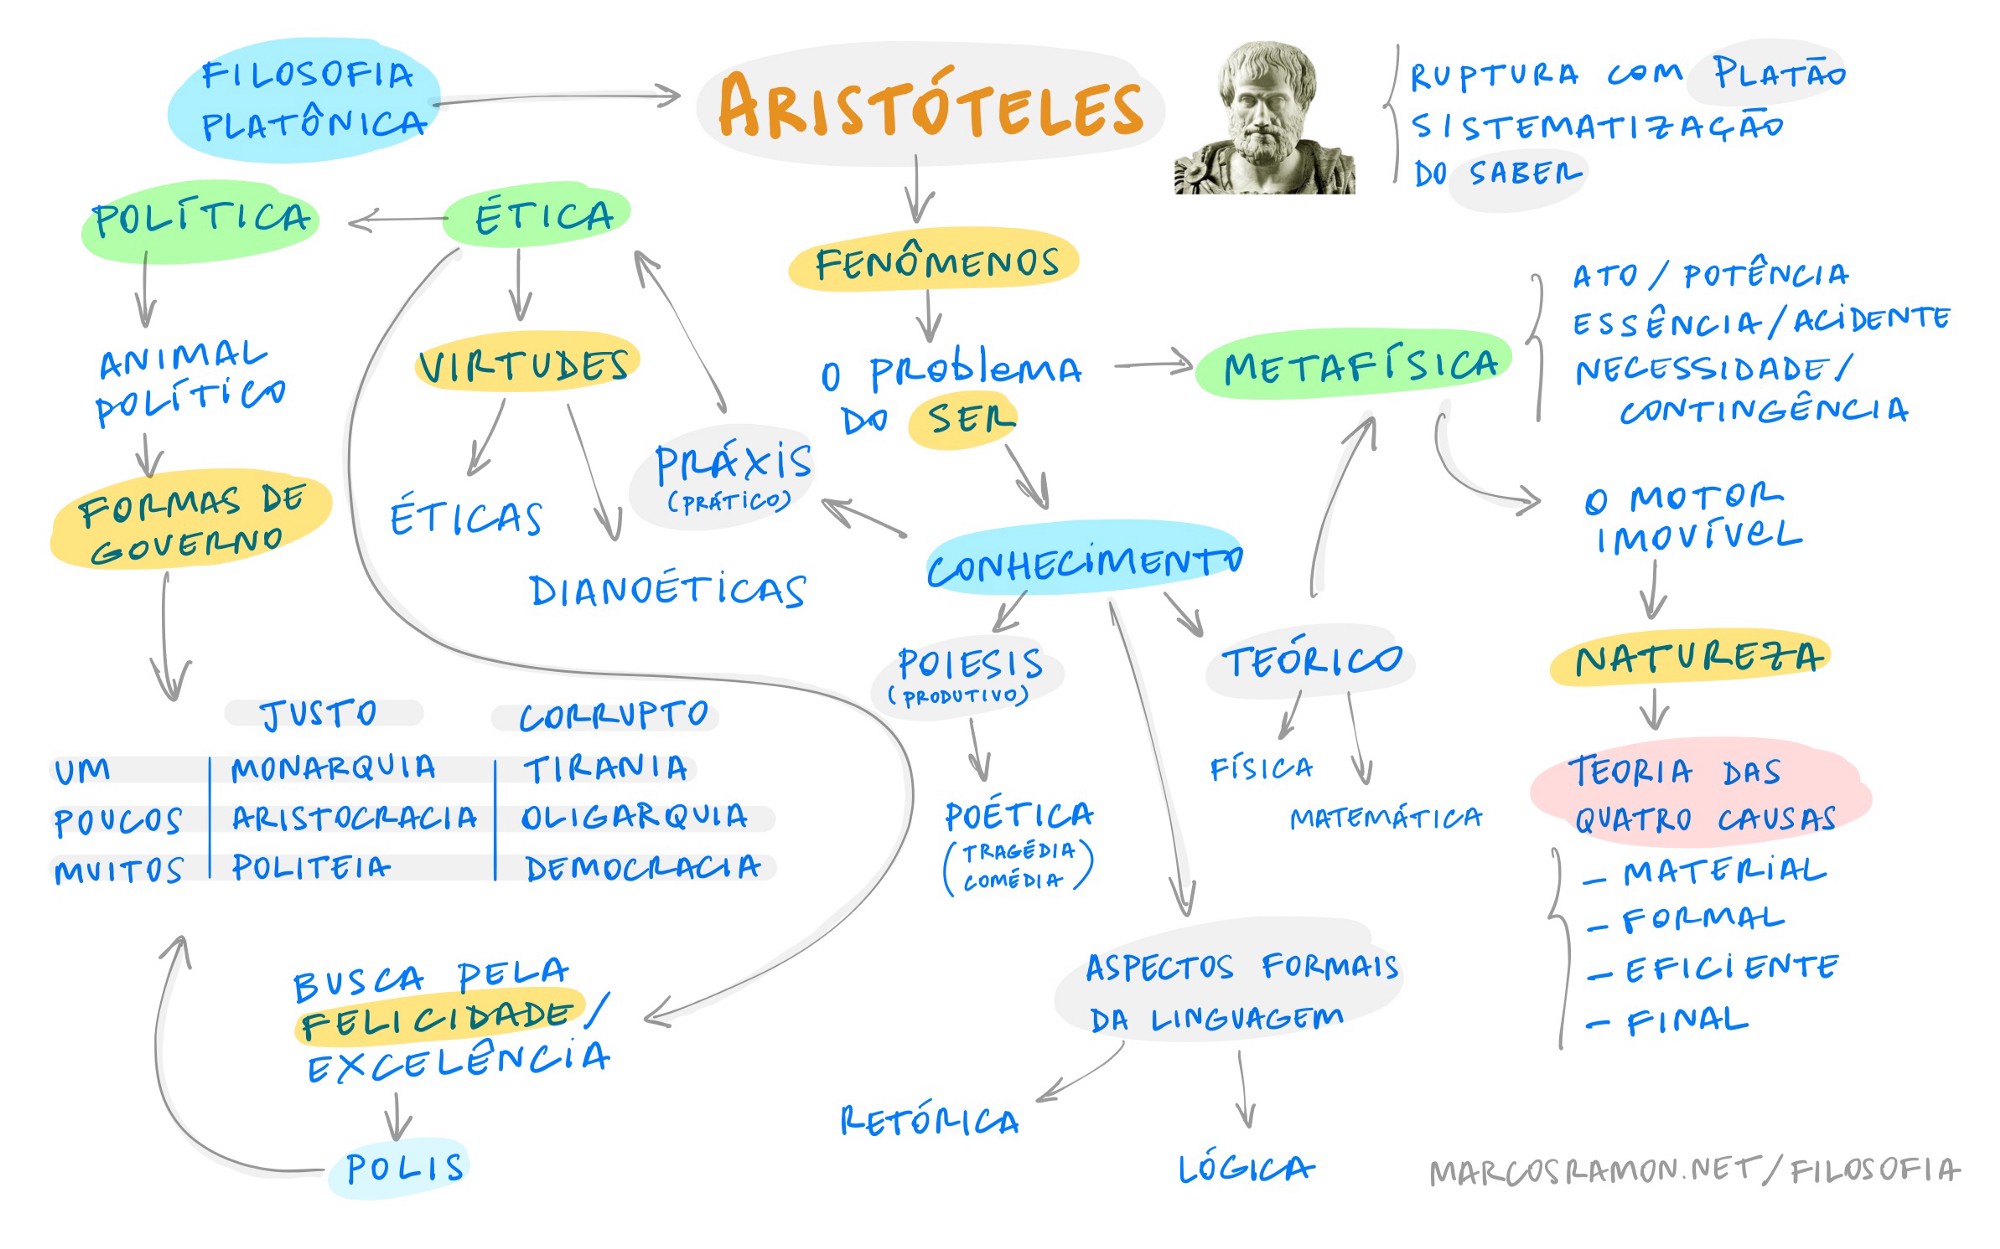 FILOSOFIA
PLATÔNICA
ARISTÓTELES
RUPTURA COM PLATÃO
SISTEMATIZAÇÃO
DO SABER
POLÍTICA
ÉTICA
FENÔMENOS
ANIMAL
POLÍTICO
VIRTUDES
O PROBLEMA
DO SER
METAFÍSICA
ATO / POTÊNCIA
ESSÊNCIA / ACIDENTE
NECESSIDADE /
CONTINGÊNCIA
FORMAS DE
GOVERNO
ÉTICAS
DIANOÉTICAS
PRÁXIS
(PRÁTICO)
CONHECIMENTO
O MOTOR
IMOVÍVEL
POIESIS
(PRODUTIVO)
TEÓRICO
NATUREZA
JUSTO CORRUPTO
UM MONARQUIA TIRANIA
POUCOS ARISTOCRACIA OLIGARQUIA
MUITOS POLITEIA DEMOCRACIA
POÉTICA
(TRAGÉDIA
COMÉDIA)
FÍSICA
MATEMÁTICA
TEORIA DAS
QUATRO CAUSAS
- MATERIAL
- FORMAL
- EFICIENTE
- FINAL
BUSCA PELA
FELICIDADE /
EXCELÊNCIA
POLIS
ASPECTOS FORMAIS
DA LINGUAGEM
RETÓRICA
LÓGICA
MARCOSRAMON.NET/FILOSOFIA